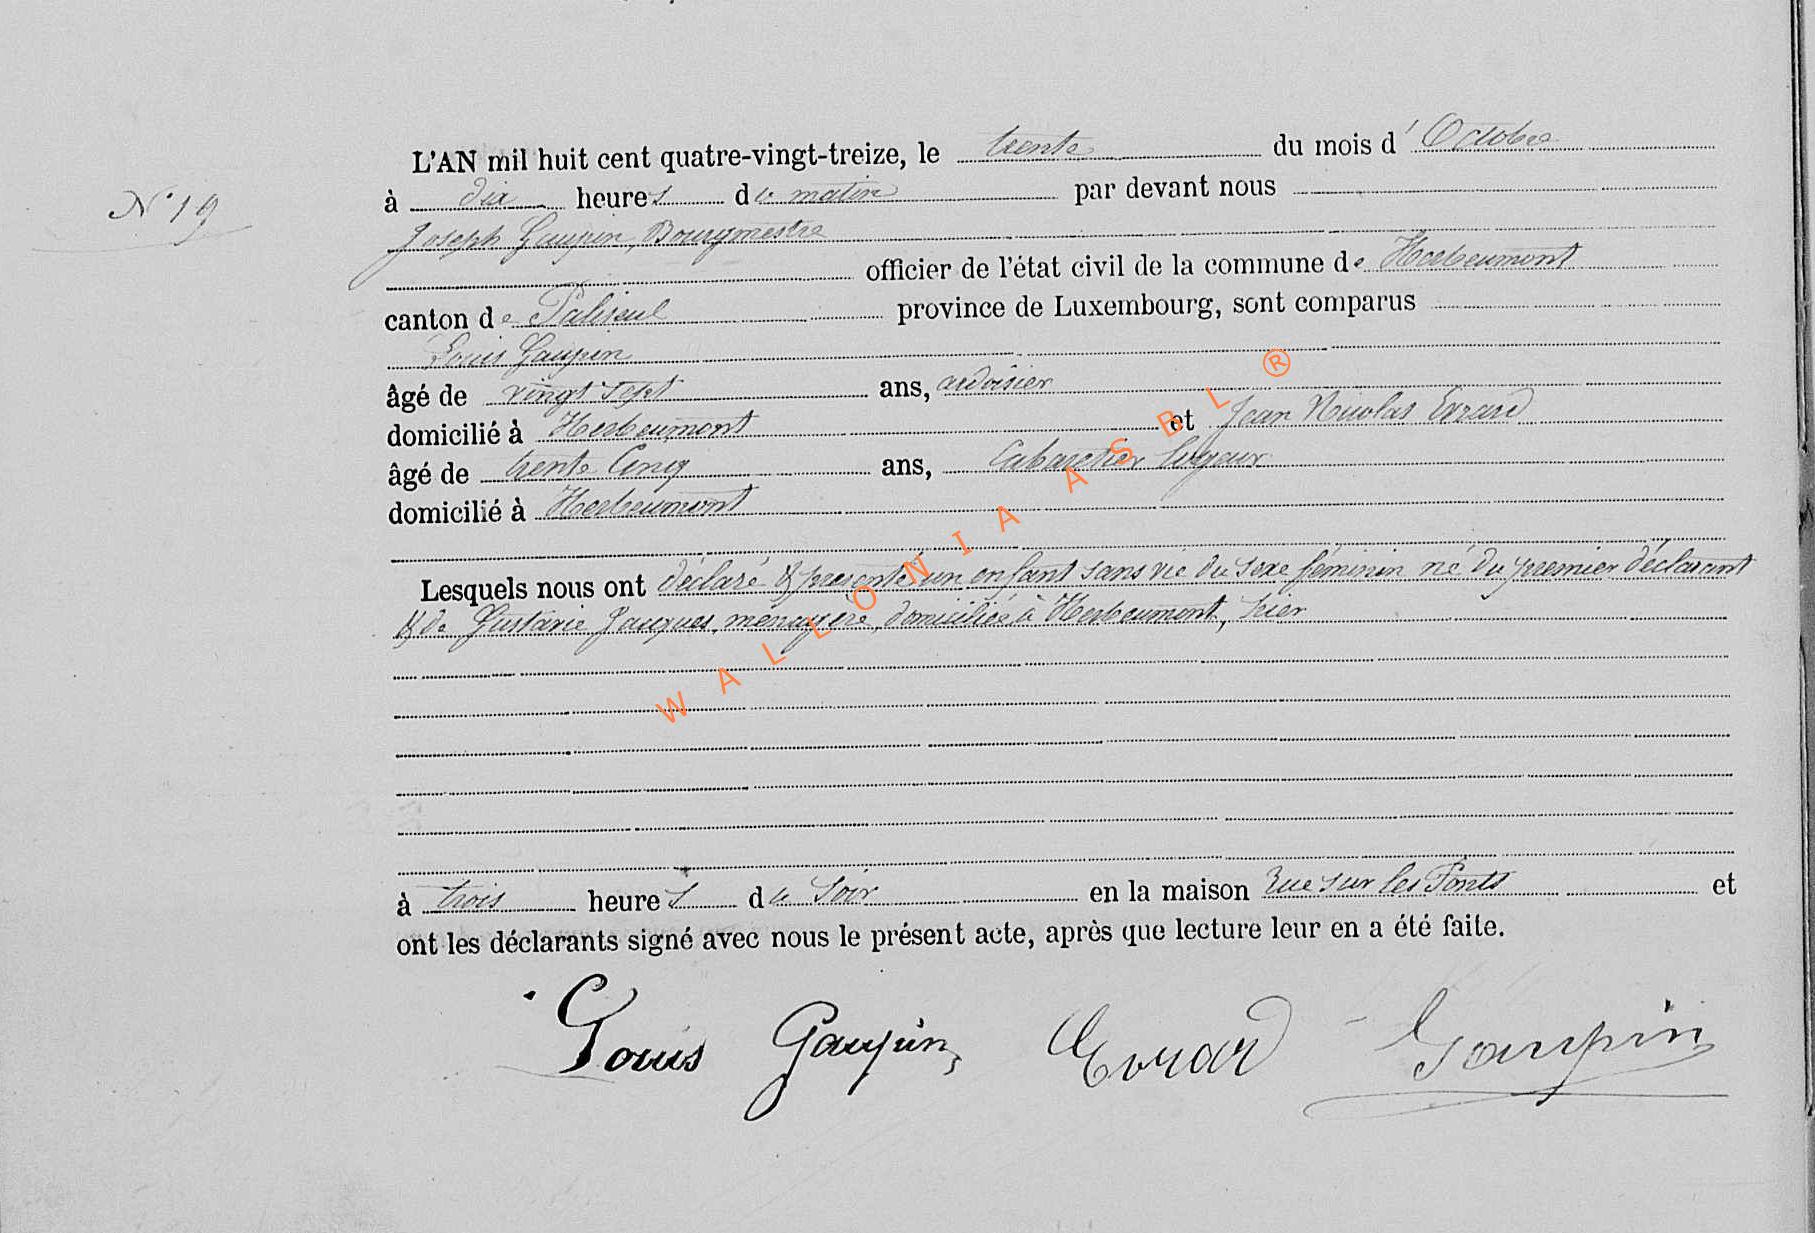 L'AN mil huit cent quatre-vingt-treize, le trente du mois d'Octobre
N° 19
à dix heures du matin par devant nous
Joseph Gaupin, Bourgmestre
officier de l'état civil de la commune de Herbeumont
canton de Paliseul province de Luxembourg, sont comparus
Louis Gaupin
âgé de vingt sept ans, ardoisier
domicilié à Herbeumont et Jean Nicolas Evrard
âgé de trente Cinq ans, Cabaretier
domicilié à Herbeumont
Lesquels nous ont déclaré & presenté un enfant sans vie du sexe féminin né du premier déclarant
& de Gustavie Jacques, menagère, domiciliée à Herbeumont, hier
à trois heures du Soir en la maison Rue sur les Ponts et
ont les déclarants signé avec nous le présent acte, après que lecture leur en a été faite.
Louis Gaupin Evrard Gaupin
WALLONIA ASBL ®